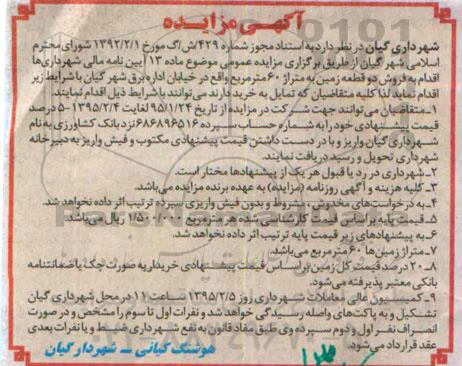 آگهی مزایده
شهرداری گیان در نظر دارد به استناد مجوز شماره ۴۲۹/ش/گ مورخ ۱۳۹۲/۲/۱ شورای محترم
اسلامی شهر گیان از طریق برگزاری مزایده عمومی موضوع ماده ۱۳ آیین نامه مالی شهرداری‌ها
اقدام به فروش دو قطعه زمین به متراژ ۶۰ مترمربع واقع در خیابان اداره برق شهر گیان با شرایط زیر
اقدام نماید لذا کلیه متقاضیان که تمایل به خرید دارند می‌توانند با شرایط ذیل اقدام نمایند.
۱ـ متقاضیان می‌توانند جهت شرکت در مزایده از تاریخ ۹۵/۱/۲۴ لغایت ۱۳۹۵/۲/۴ ۵ درصد
قیمت پیشنهادی خود را به شماره حساب سپرده ۶۸۶۸۹۶۵۱۶ نزد بانک کشاورزی به نام
شهرداری گیان واریز و با در دست داشتن قیمت پیشنهادی مکتوب و فیش واریز به دبیرخانه
شهرداری تحویل و رسید دریافت نمایند.
۲ـ شهرداری در رد یا قبول هر یک از پیشنهادها مختار است.
۳ـ کلیه هزینه و آگهی روزنامه (مزایده) به عهده برنده مزایده می‌باشد.
۴ـ به درخواست‌های مخدوش، مشروط و بدون فیش واریزی سپرده ترتیب اثر داده نخواهد شد.
۵ـ قیمت پایه براساس قیمت کارشناسی شده هر مترمربع ۱/۵۰۰/۰۰۰ ریال می‌باشد.
۶ـ به پیشنهادهای زیر قیمت پایه ترتیب اثر داده نخواهد شد.
۷ـ متراژ زمین‌ها ۶۰ مترمربع می‌باشد.
۸ـ ۲۰ درصد قیمت کل زمین براساس قیمت پیشنهادی خریدار به صورت چک یا ضمانتنامه
بانکی معتبر پذیرفته می‌شود.
۹ـ کمیسیون عالی معاملات شهرداری روز ۱۳۹۵/۲/۵ ساعت ۱۱ در محل شهرداری گیان
تشکیل و به پاکت‌های واصله رسیدگی خواهد شد و نفرات اول تا سوم را مشخص و در صورت
انصراف نفر اول و دوم سپرده وی طبق مفاد قانون به نفع شهرداری ضبط و با نفرات بعدی
عقد قرارداد می‌شود.
هوشنگ کیانی ـ شهردار گیان